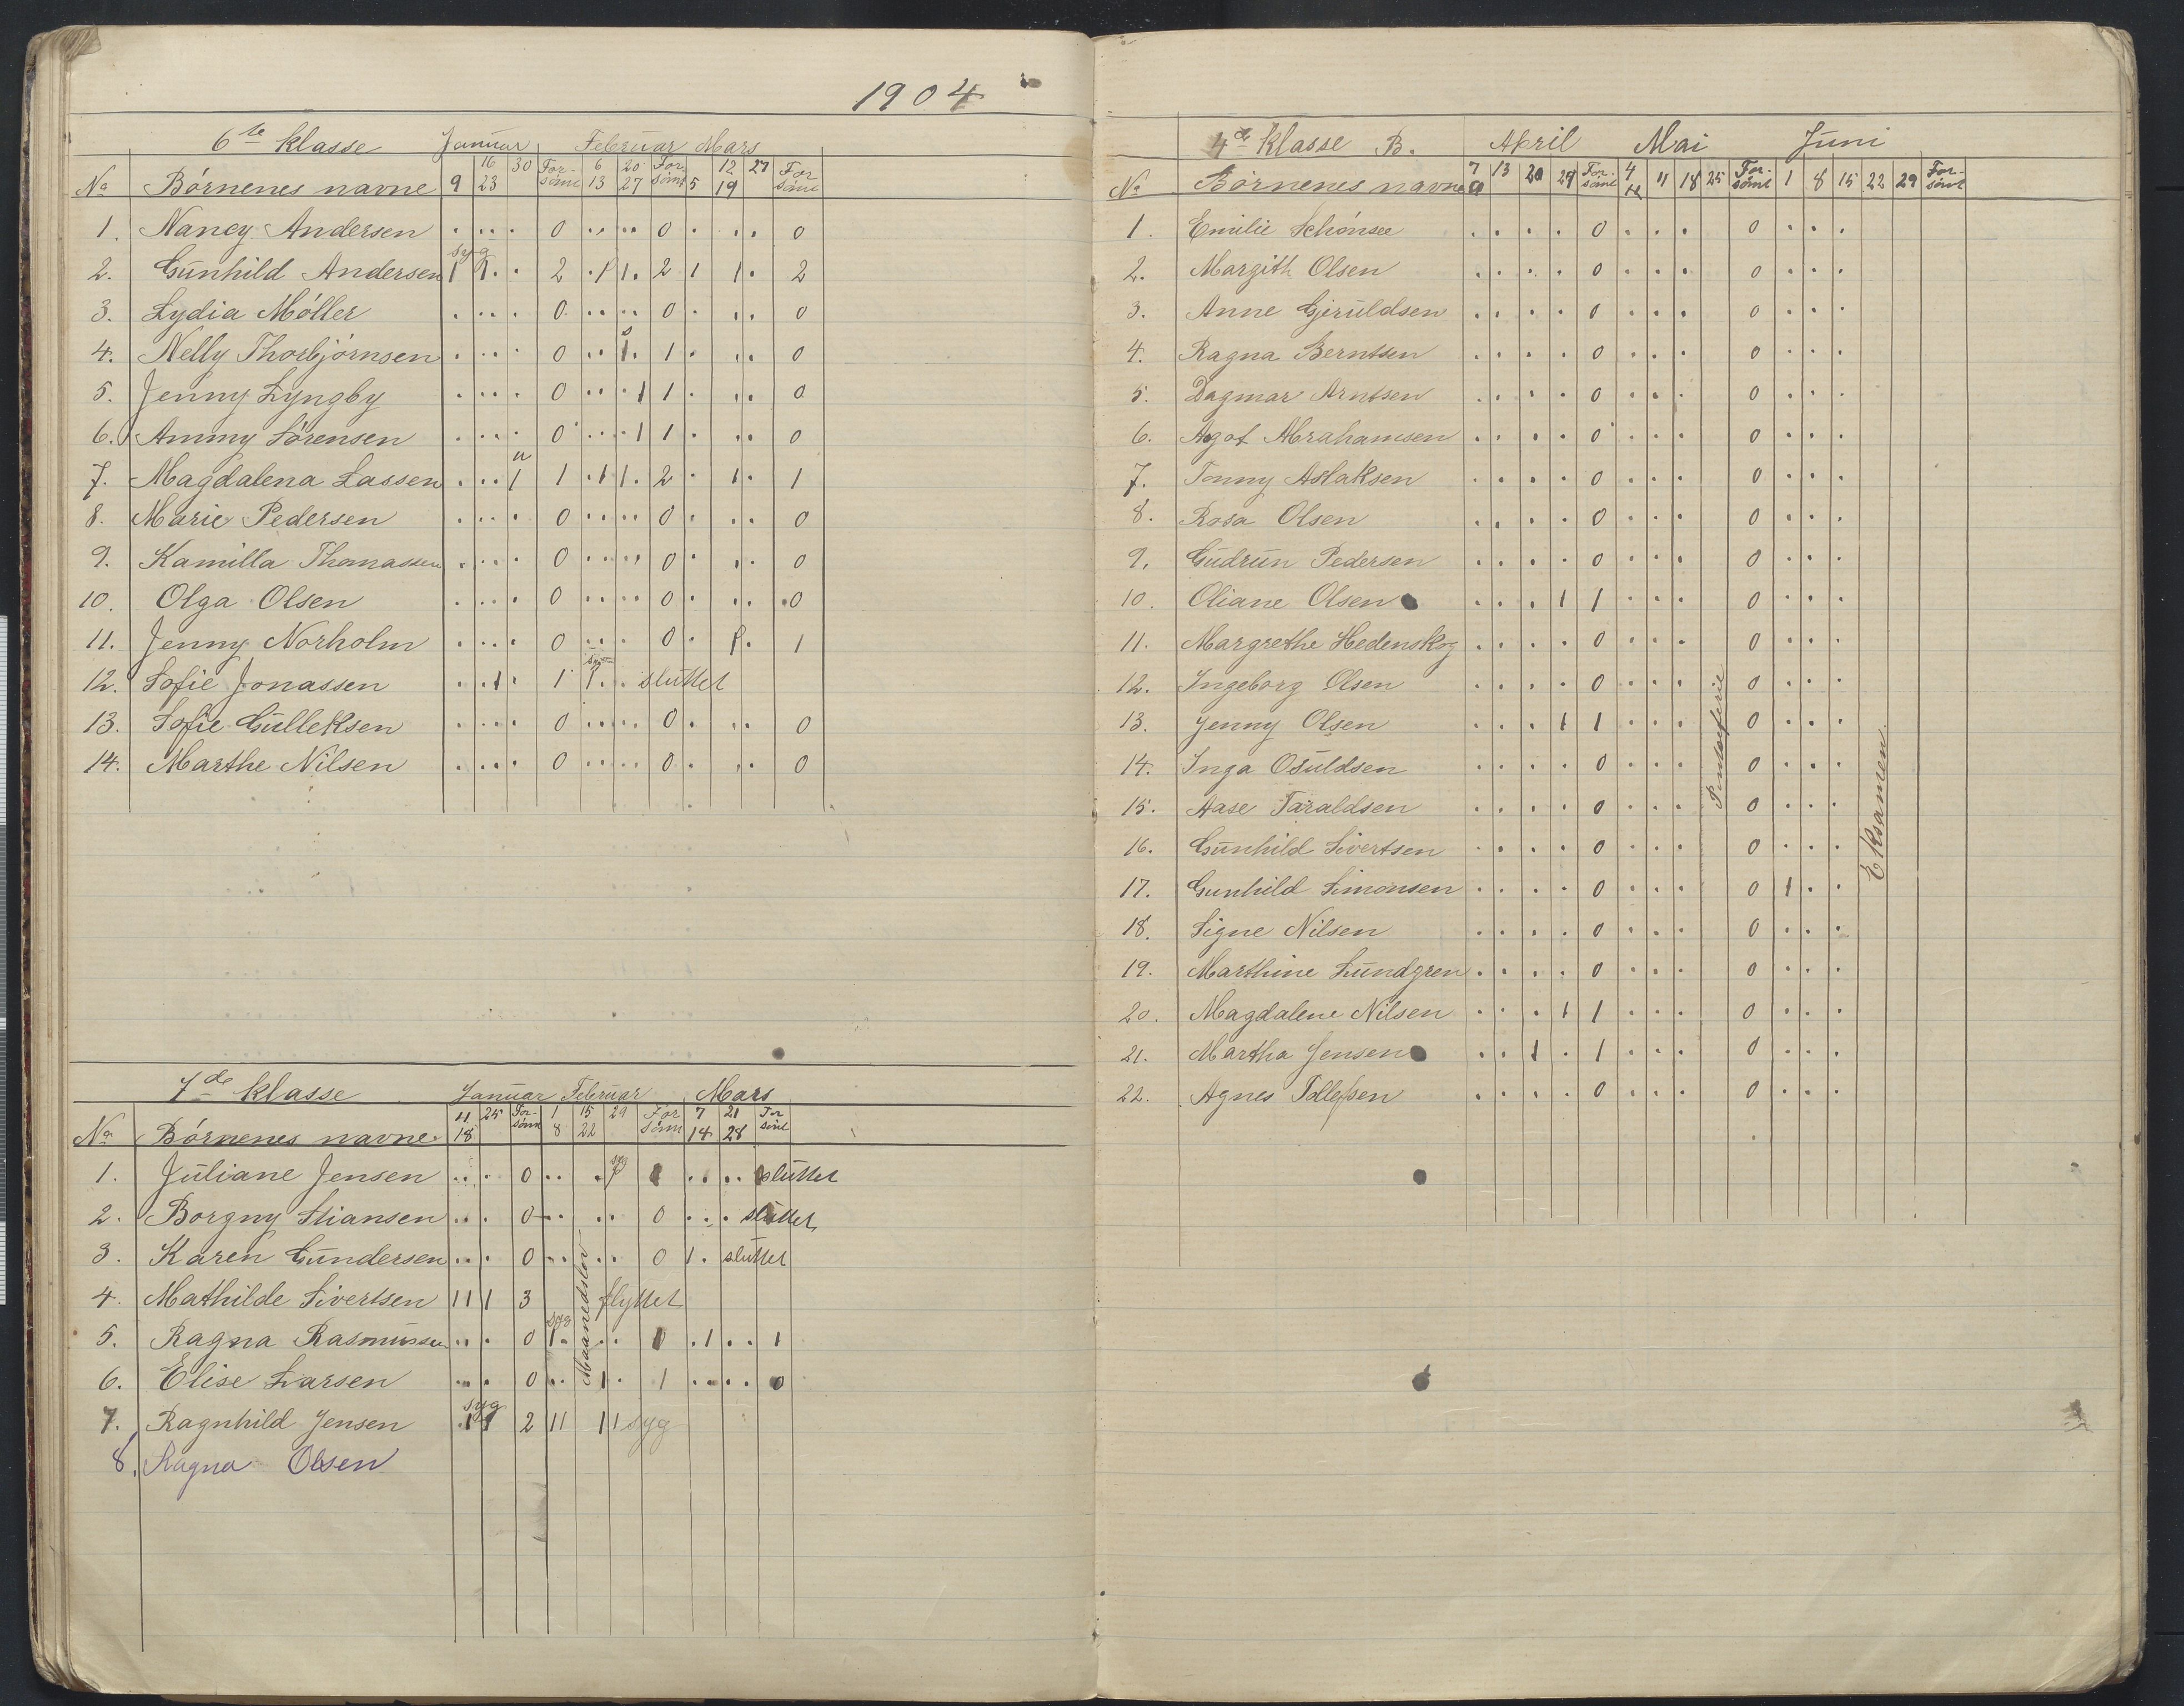 1904
6te Klasse Januar Februar Mars
No Börnenes navne 9 16 23 30 For-sömt 6 13 20 27 For-sömt 5 12 19 27 For sömt
1. Nancy Andersen . . . . 0 . . . . 0 . . . 0
2. Gunhild Andersen syg 1 1 . . 2 . 1 1 . 2 1 1 . 2
3. Lydia Möller . . . . 0 . . . . 0 . . . 0
4. Nelly Thorbjörnsen . . . . 0 . . 1 . 1 . . . 0
5. Jenny Lyngby . . . . 0 . . . 1 1 . . . 0
6. Ammy Sörensen . . . . 0 . . . 1 1 . . . 0
7. Magdalena Lassen . . . 1 1 . 1 1 . 2 . 1 . 1
8. Marie Pedersen . . . . 0 . . . . 0 . . . 0
9. Kamilla Thomassen . . . . 0 . . . . 0 . . . 0
10. Olga Olsen . . . . 0 . . . . 0 . . . 0
11. Jenny Norholm . . . . 0 . . . 0 . 1 . 1
12. Sofie Jonassen . . 1 . 1 syg 1 . . sluttet
13. Sofie Gulleksen . . . . 0 . . . . 0 . . . 0
14. Marthe Nilsen . . . . 0 . . . . 0 . . . 0
7de Klasse Januar Februar Mars
No Börnenes navne 11 18 25 For-sömt 1 8 15 22 29 For sömt 7 14 21 28 For sömt
1. Juliane Jensen . . . 0 . . . syg 1 1 . . . . sluttet
2. Borgny Stiansen . . . 0 . . . . 0 . . . sluttet
3. Karen Gundersen . . . 0 . . . . 0 1 . sluttet
4. Mathilde Sivertsen 1 1 1 3 flyttet
5. Ragna Rasmussen . . . 0 syg 1 . . . 1 . 1 . . 1
6. Elise Larsen . . . 0 . . 1 . 1 . . . . 0
7. Ragnhild Jensen syg . 1 1 2 1 1 1 1 syg
8. Ragna Olsen
Maanedslov
4de Klasse B. April Mai Juni
No Börnenes navne 7 9 13 20 29 For-sömt 4 11 18 25 For-sömt 1 8 15 22 29 For-sömt
1. Emilie Schönsee . . . . 0 . . . 0 . . .
2. Margith Olsen . . . . 0 . . . 0 . . .
3. Anne Gjeruldsen . . . . 0 . . . 0 . . .
4. Ragna Berntsen . . . . 0 . . . 0 . . .
5. Dagmar Arntsen . . . . 0 . . . 0 . . .
6. Agot Abrahamsen . . . . 0 . . . 0 . . .
7. Tonny Aslaksen . . . . 0 . . . 0 . . .
8. Rosa Olsen . . . . 0 . . . 0 . . .
9. Gudrun Pedersen . . . . 0 . . . 0 . . .
10. Oliane Olsen . . . 1 1 . . . 0 . . .
11. Margrethe Hedenskog . . . . 0 . . . 0 . . .
12. Ingeborg Olsen . . . . 0 . . . 0 . . .
13. Jenny Olsen . . . 1 1 . . . 0 . . .
14. Inga Osuldsen . . . . 0 . . . 0 . . .
15. Aase Taraldsen . . . . 0 . . . 0 . . .
16. Gunhild Sivertsen . . . . 0 . . . 0 . . .
17. Gunhild Simonsen . . . . 0 . . . 0 1 . .
18. Signe Nilsen . . . . 0 . . . 0 . . .
19. Marthine Lundgren . . . . 0 . . . 0 . . .
20. Magdalene Nilsen . . . 1 1 . . . 0 . . .
21. Martha Jensen . . 1 . 1 . . . 0 . . .
22. Agnes Tellefsen . . . . 0 . . . 0 . . .
Pindseferie
Eksamen.